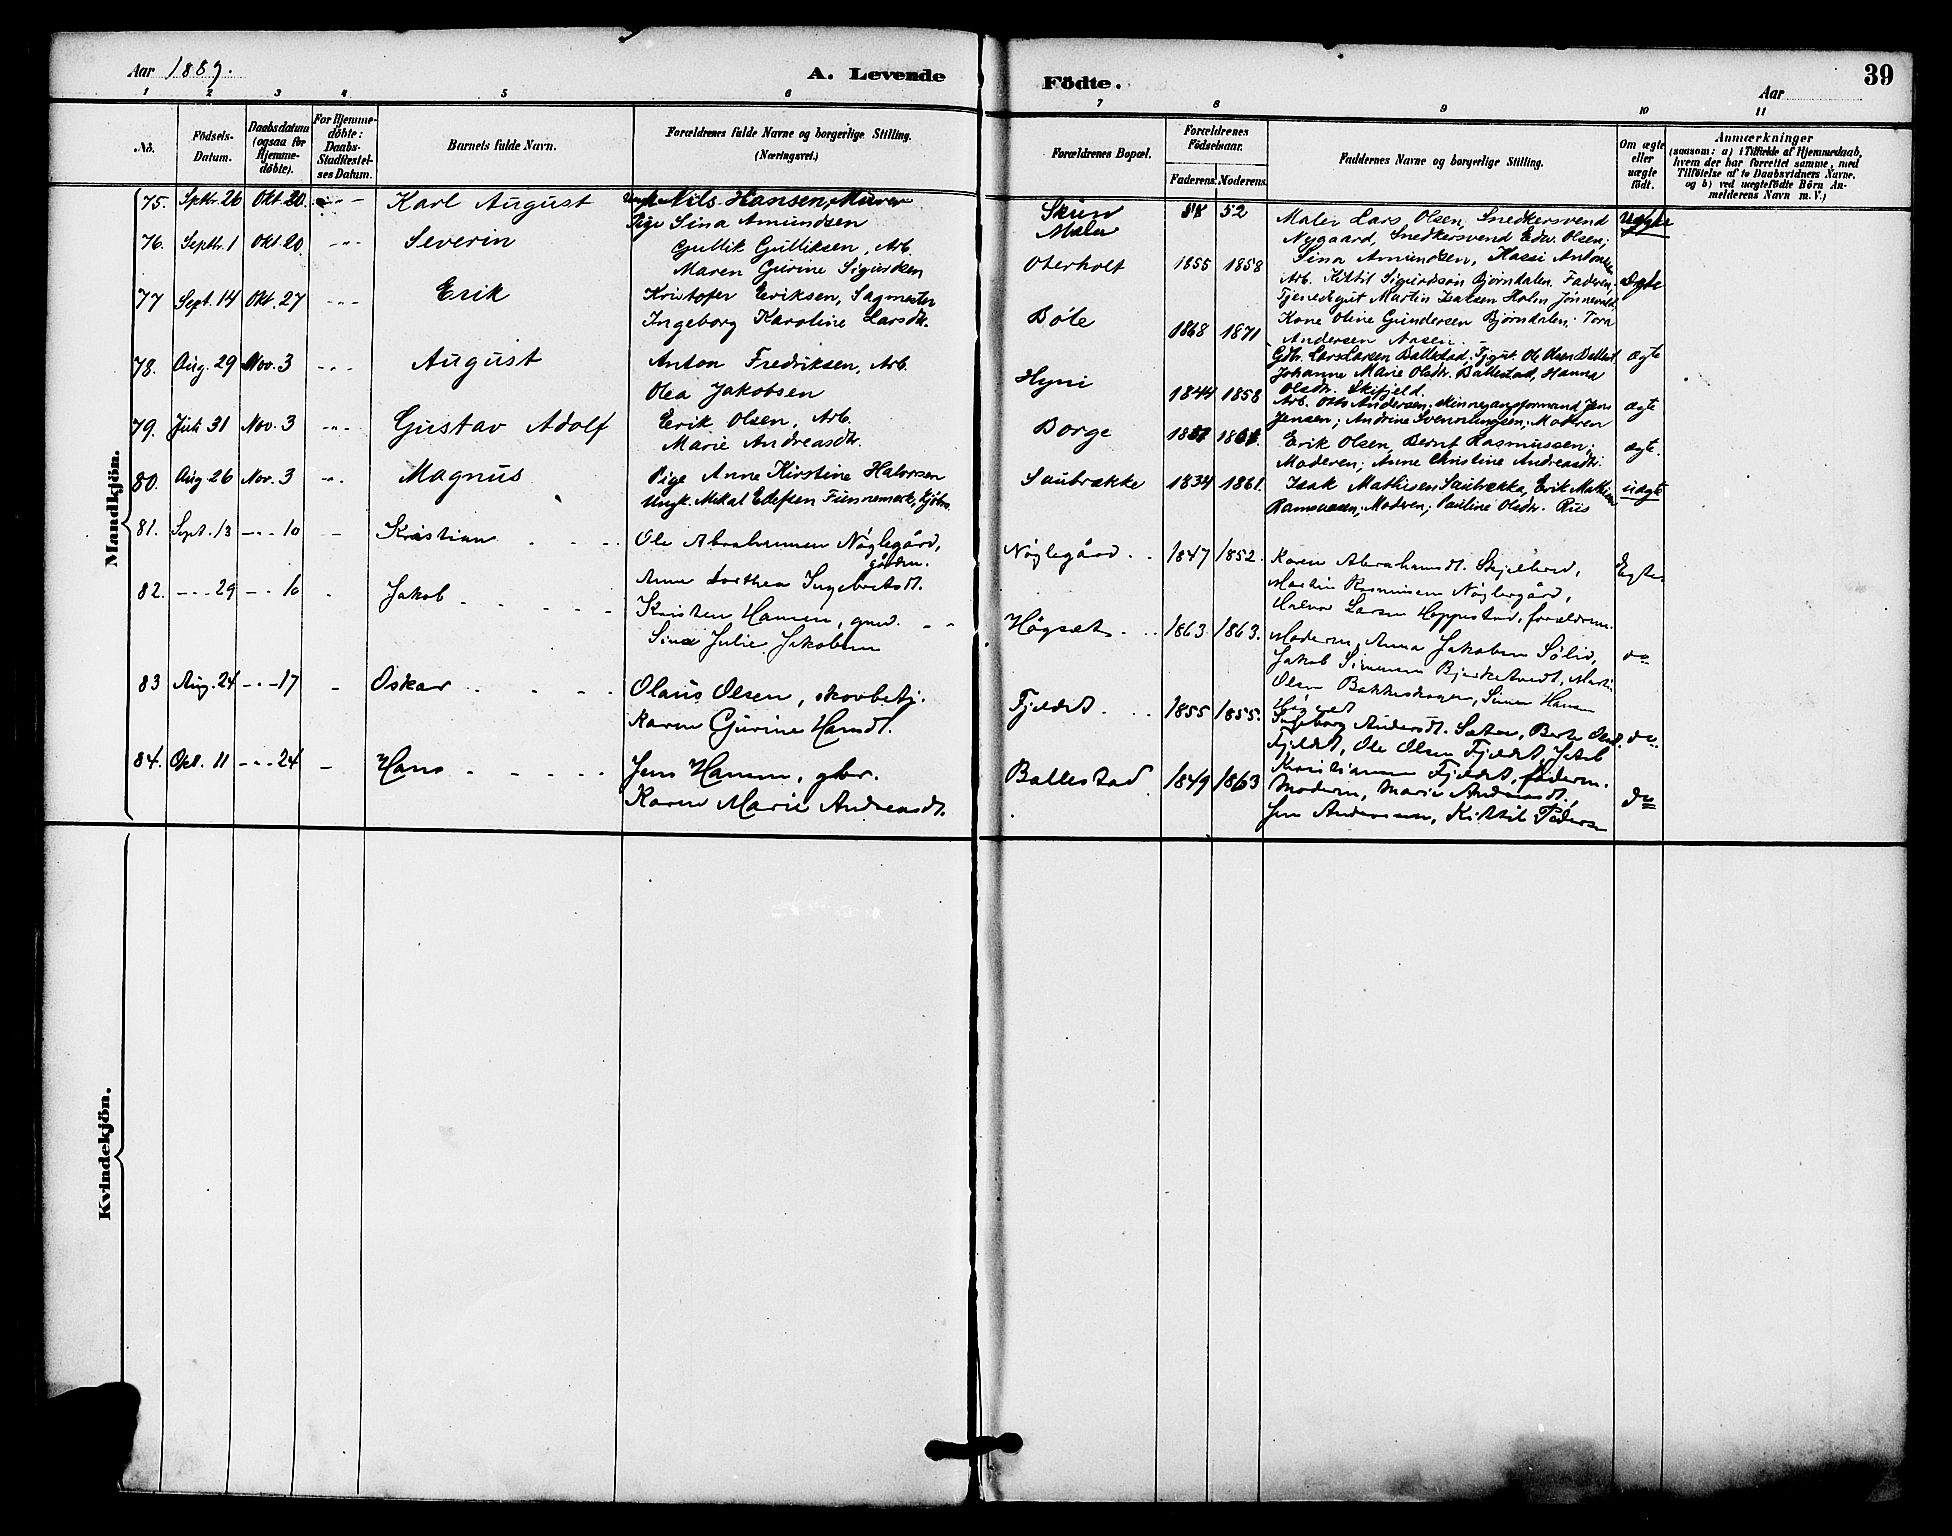 Aar 1889.
A. Levende Födte.
39
Aar
1 2 3 4 5 6 7 8 9 10 11
No.
Födsels-Datum.
Daabsdatum (ogsaa for Hjemmedøbte).
For Hjemmedøbte: Daabs-Stadfæstelses Datum.
Barnets fulde Navn.
Forældrenes fulde Navne og borgerlige Stilling.
(Næringsvei.)
Forældrenes Bopæl.
Forældrenes Födselsaar.
Faderens. Moderens.
Faddernes Navne og borgerlige Stilling.
Om ægte eller uægte födt.
Anmærkninger
(saasom: a) i Tilfælde af Hjemmedaab, hvem der har forrettet samme, med Tilföielse af to Daabsvidners Navne. og b) ved uægtefödte Börn Anmelderens Navn m. V.)
Mandkjön.
75. Septbr. 26 Okt. 20. Karl August
Nils Hansen, Murer
Pige Sina Amundsen
Skien
52
Maler Lars Olsen, Snedkersvend
Nygaard, Snedkersvend Edv. Olsen;
Sina Amundsen, Hassi
76. Septbr. 1 Okt. 20. Severin
Gullik Gulliksen, Arb.
Maren Gurine Sigurdsen
Oterholt
1855 1858
Arb. Kittil Sigurdson Bjørndalen. Faderen,
Tjenestegut Martin Isaksen Holm
Kone Oline Gundersen Bjørndalen. Tora
Andersen Aasen.
Ægte
77 Sept. 14 Okt. 27 Erik
Kristofer Eriksen, Sagmester
Ingeborg Karoline Larsdtr.
Bøle
1868 1871
Gdbr. Lars Larsen Ballestad, Ole Olsen
Johanne Marie Olsdtr. Ballestad, Hanna
Olsdtr. Skifjeld.
ægte
78. Aug. 29 Nov. 3 August
Anton Fredriksen, Arb.
Olea Jakobsen
Hyni
1844 1858
Arb. Andersen, Jens
Jensen; Andrine Svennungsen, Moderen
ægte
79. Juli 31 Nov. 3 Gustav Adolf
Erik Olsen, Arb.
Marie Andreasdtr.
Borge
Erik Olsen, Bernt Rasmussen;
Moderen; Anne Christine Andreasdtr.
ægte.
80. Aug 26 Nov. 3 Magnus
Pige Anne Kirstine Halvorsen
Ungk. Mekal Ellefsen
Saubrække
1834 1861.
Isak Mathisen Saubrækka, Erik
Moderen; Pauline Olsdtr. Riis
uægte
81. Sept. 13 -"- 10 Kristian
Ole Abrahamsen Nøglegård,
gårdm.
Anne Dorthea Ingebretsdt.
Nøglegård
1847 1852.
Karen Abrahamsdt.
Martin Rasmussen Nøglegård,
Halvor Larsen Hoppestad, forældrene.
Egte
82. -"- 29 -"- 10 Jakob
Karsten Hansen, gmd.
Sina Julie Jakobsen
Høgset
1863 1863.
Moderen, Anna Jakobsen Sølie,
Jakob Simonsen Bjerketvedt, Martin
Olsen Bakkeshagen, Simon Hansen
Høgset
do
83 Aug. 24 -"- 17 Oskar
Olaus Olsen, skovbetj.
Karen Gurine Hansdt.
Fjeldet
1855 1855.
Ingeborg Andersdt. Sæter, Berte
Fjeldet, Ole Olsen Fjeldet, Jakob
Kristiansen Fjeldet, faderen.
do.
84. Okt. 11 -"- 24 Hans
Jens Hansen, gbr.
Karen Marie Andreasdt.
Ballestad
1849 1863
Moderen, Marie Andreasdt,
Jens Andersen, Kittil Pedersen
do
Kvindekjön.